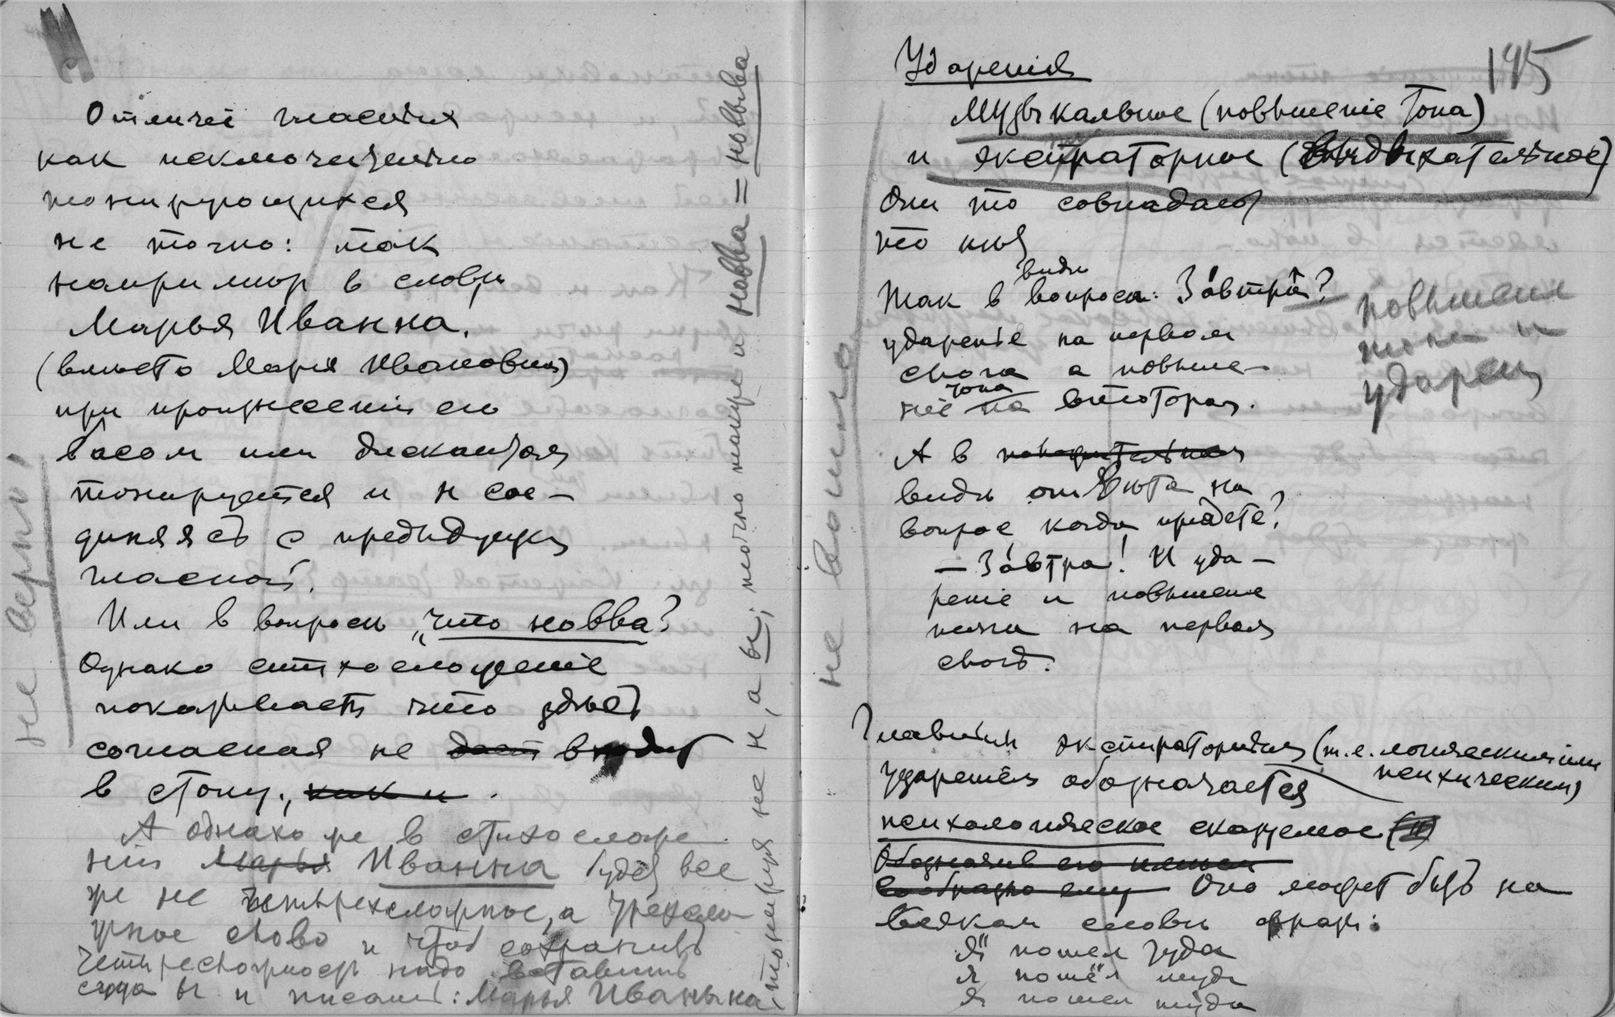 Отличіе гласных
как исключительно
тонирующихся
не точно: так
например в слове
Марья Иванна.
(вместо Мария Ивановна)
при произнесении его
басом или дискантом
тонируется и н сое-
диняясь с предыдущей
гласной.
Или в вопросе „что новва?
Однако стихосложеніе
показывает что здесь
согласная не даст входит
в стопу., как и .
А однако же в стихосложе-
нии Марья Иванна будет все
же не четырехсложное, а трехсло-
жное слово и чтоб сохранить
четырехсложность надо вставить
сюда ы и писать: Марья Иванына
не верно!
тонируя не н, а ы; точно также и новва = новыва
145
Ударенія
Музыкальное (повышеніе тона)
и экспираторное (выдыхательное)
Они то совпадают
то нет
Так в виде вопроса: За́втра̂?
удареніе на первом
слоге а повыше-
ніе тона на втором.
повышения
тона и
ударен
А в
виде ответа на
вопрос когда придете?
— За́втра! И уда-
реніе и повышение
тона на первом
слоге.
не вошло
Главным экспираторным (т.е. логическим или
психическим)
удареніем обозначается
психологическое сказуемое
Обозначив его
сообразно ему Оно может быть на
всяком слове фразы:
Я" пошел туда
я пошёл туда
Я пошел туда